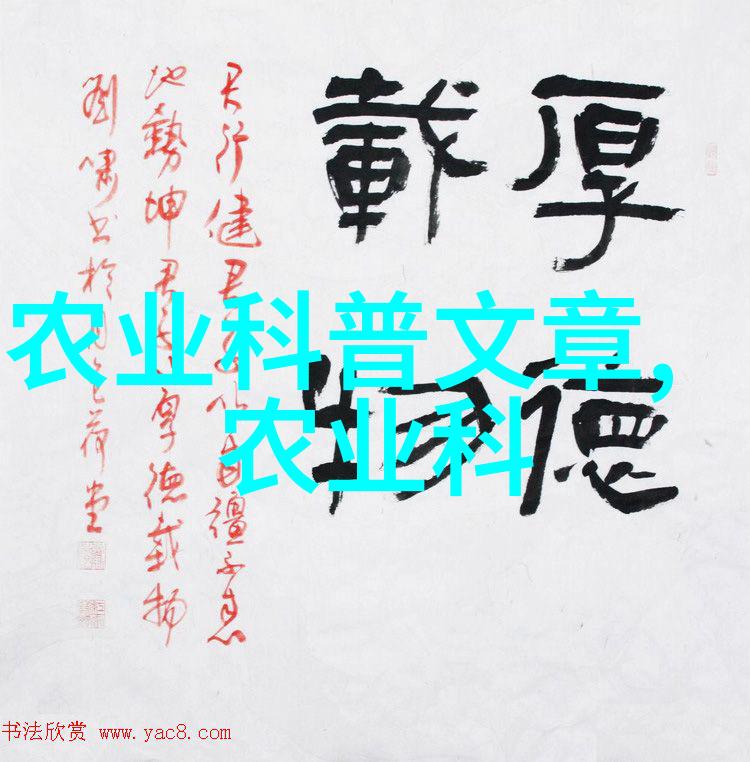 厚德
載物
天行健君子以自彊不息
地勢坤君子以厚德載物
劉嘯书於
荷堂
农业科普文章,
农业科
书法欣赏 www.yac8.com